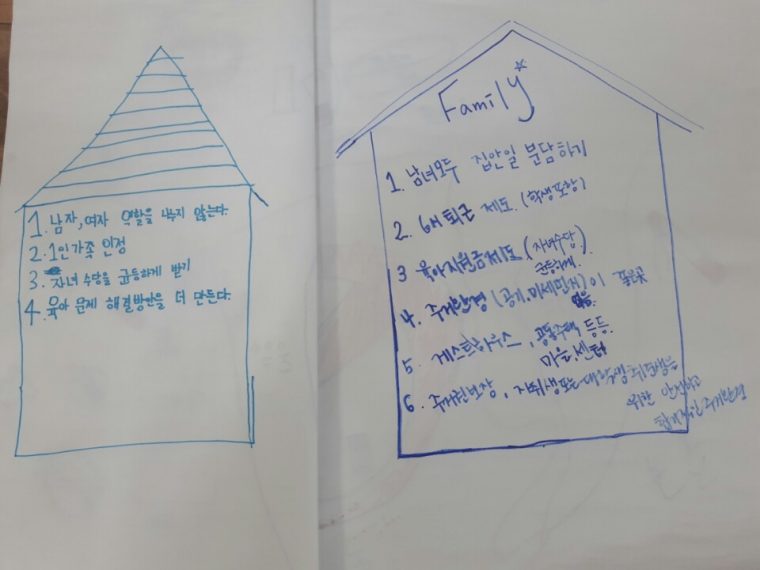 1. 남자, 여자 역할을 나누지 않는다.
2. 1인가족 인정
3. 자녀 수당을 균등하게 받기
4. 육아 문제 해결방안을 더 만든다.
Family
1. 남녀모두 집안일 분담하기
2. 6시 퇴근 제도 (학생포함)
3 육아지원금제도 (자녀수당)
균등하게
4. 주거환경 (공기, 미세먼지)이 좋은곳
5. 게스트하우스, 공동주택 등등.
마을, 센터
6. 주거권보장, 자취생또는 대학생
위한 안전하고
합리적인 주거환경